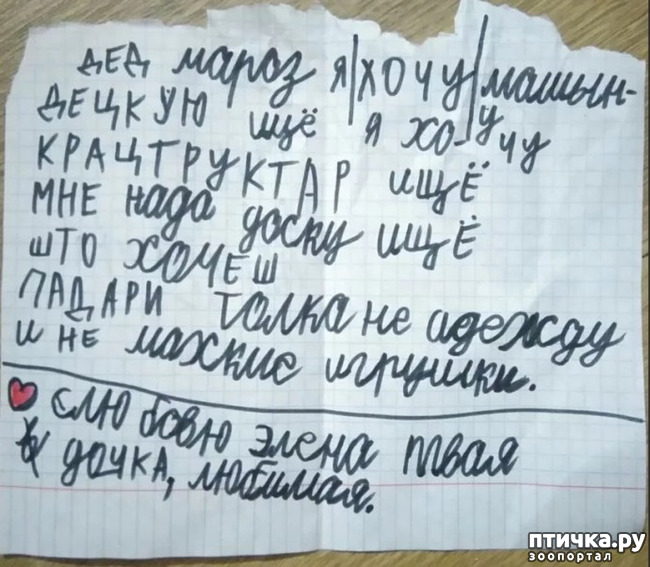 ДЕД мароз я хочу машын-у
ДЕЦКУЮ ищё я хо-чу
КРАЦТРУКТАР ИЩЁ
МНЕ нада доску ИЩЁ
ШТО ХОЧЕШ
ПАДАРИ толка не адежду
и НЕ махкие игрушки.
слюбовю элена твая
дочка, любимая.
птичка.ру
зоопортал